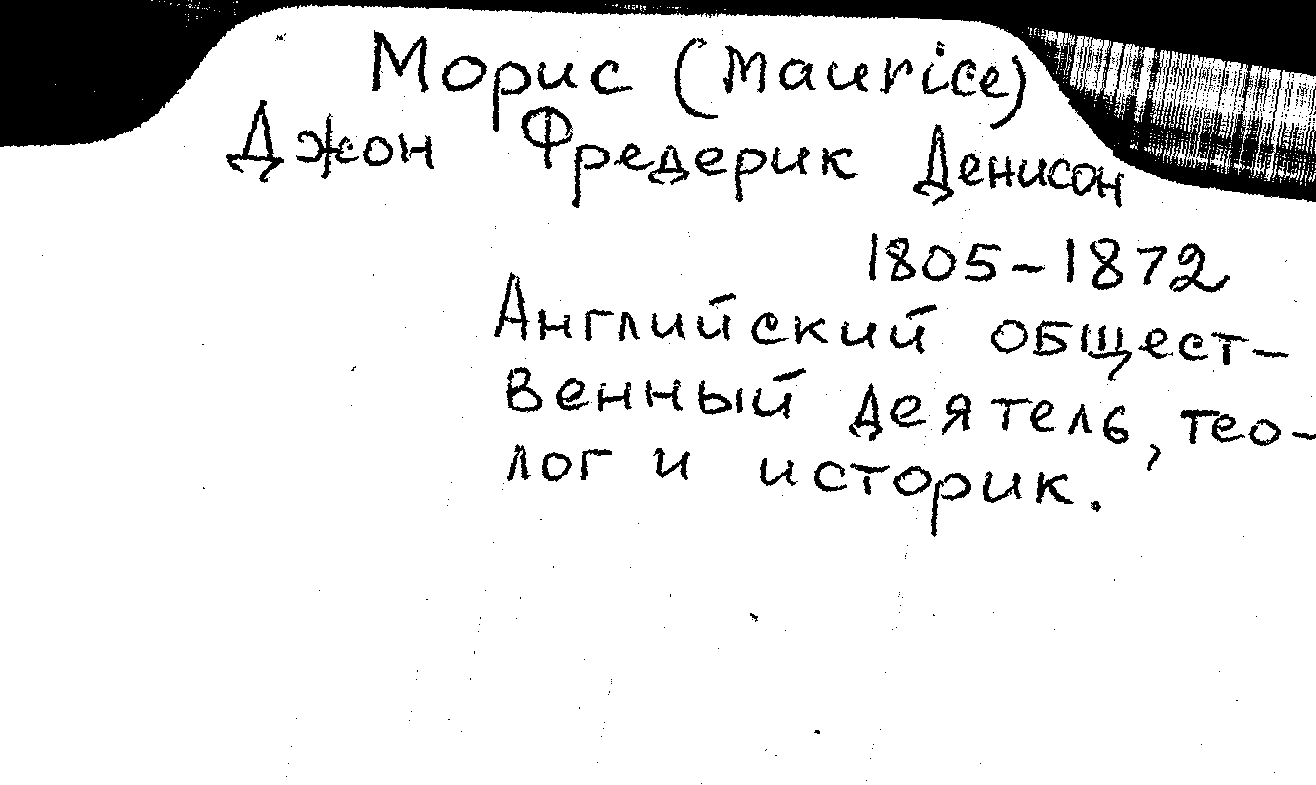 Морис (Maurice)
Джон Фредерик Денисон
1805-1872
Английский общест-
венный деятель, тео-
лог и историк.